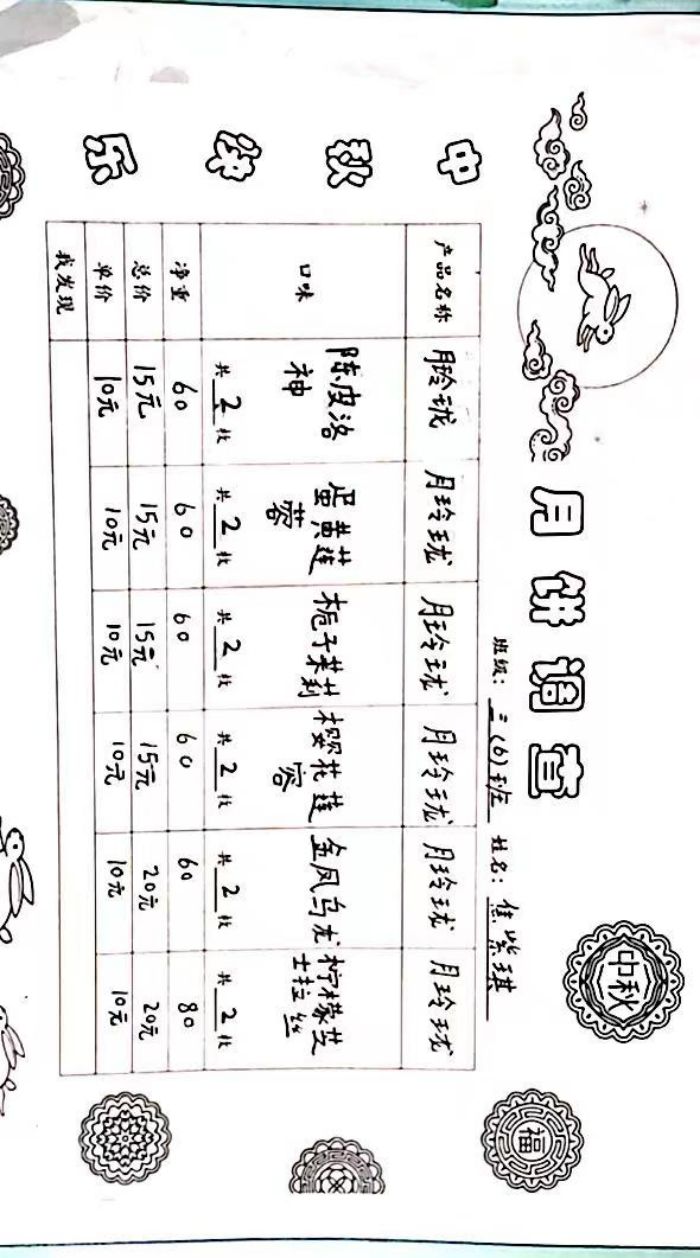 月饼调查
班级：三(6)班 姓名：焦紫琪
中秋快乐
产品名称 月玲珑 月玲珑 月玲珑 月玲珑 月玲珑 月玲珑
口味 陈皮洛神 蛋黄莲蓉 栀子茉莉 樱花莲容 金凤乌龙 柠檬芝士拉丝
共2枚 共2枚 共2枚 共2枚 共2枚 共2枚
净重 60 60 60 60 60 80
总价 15元 15元 15元 15元 20元 20元
单价 10元 10元 10元 10元 10元 10元
我发现
中秋
福